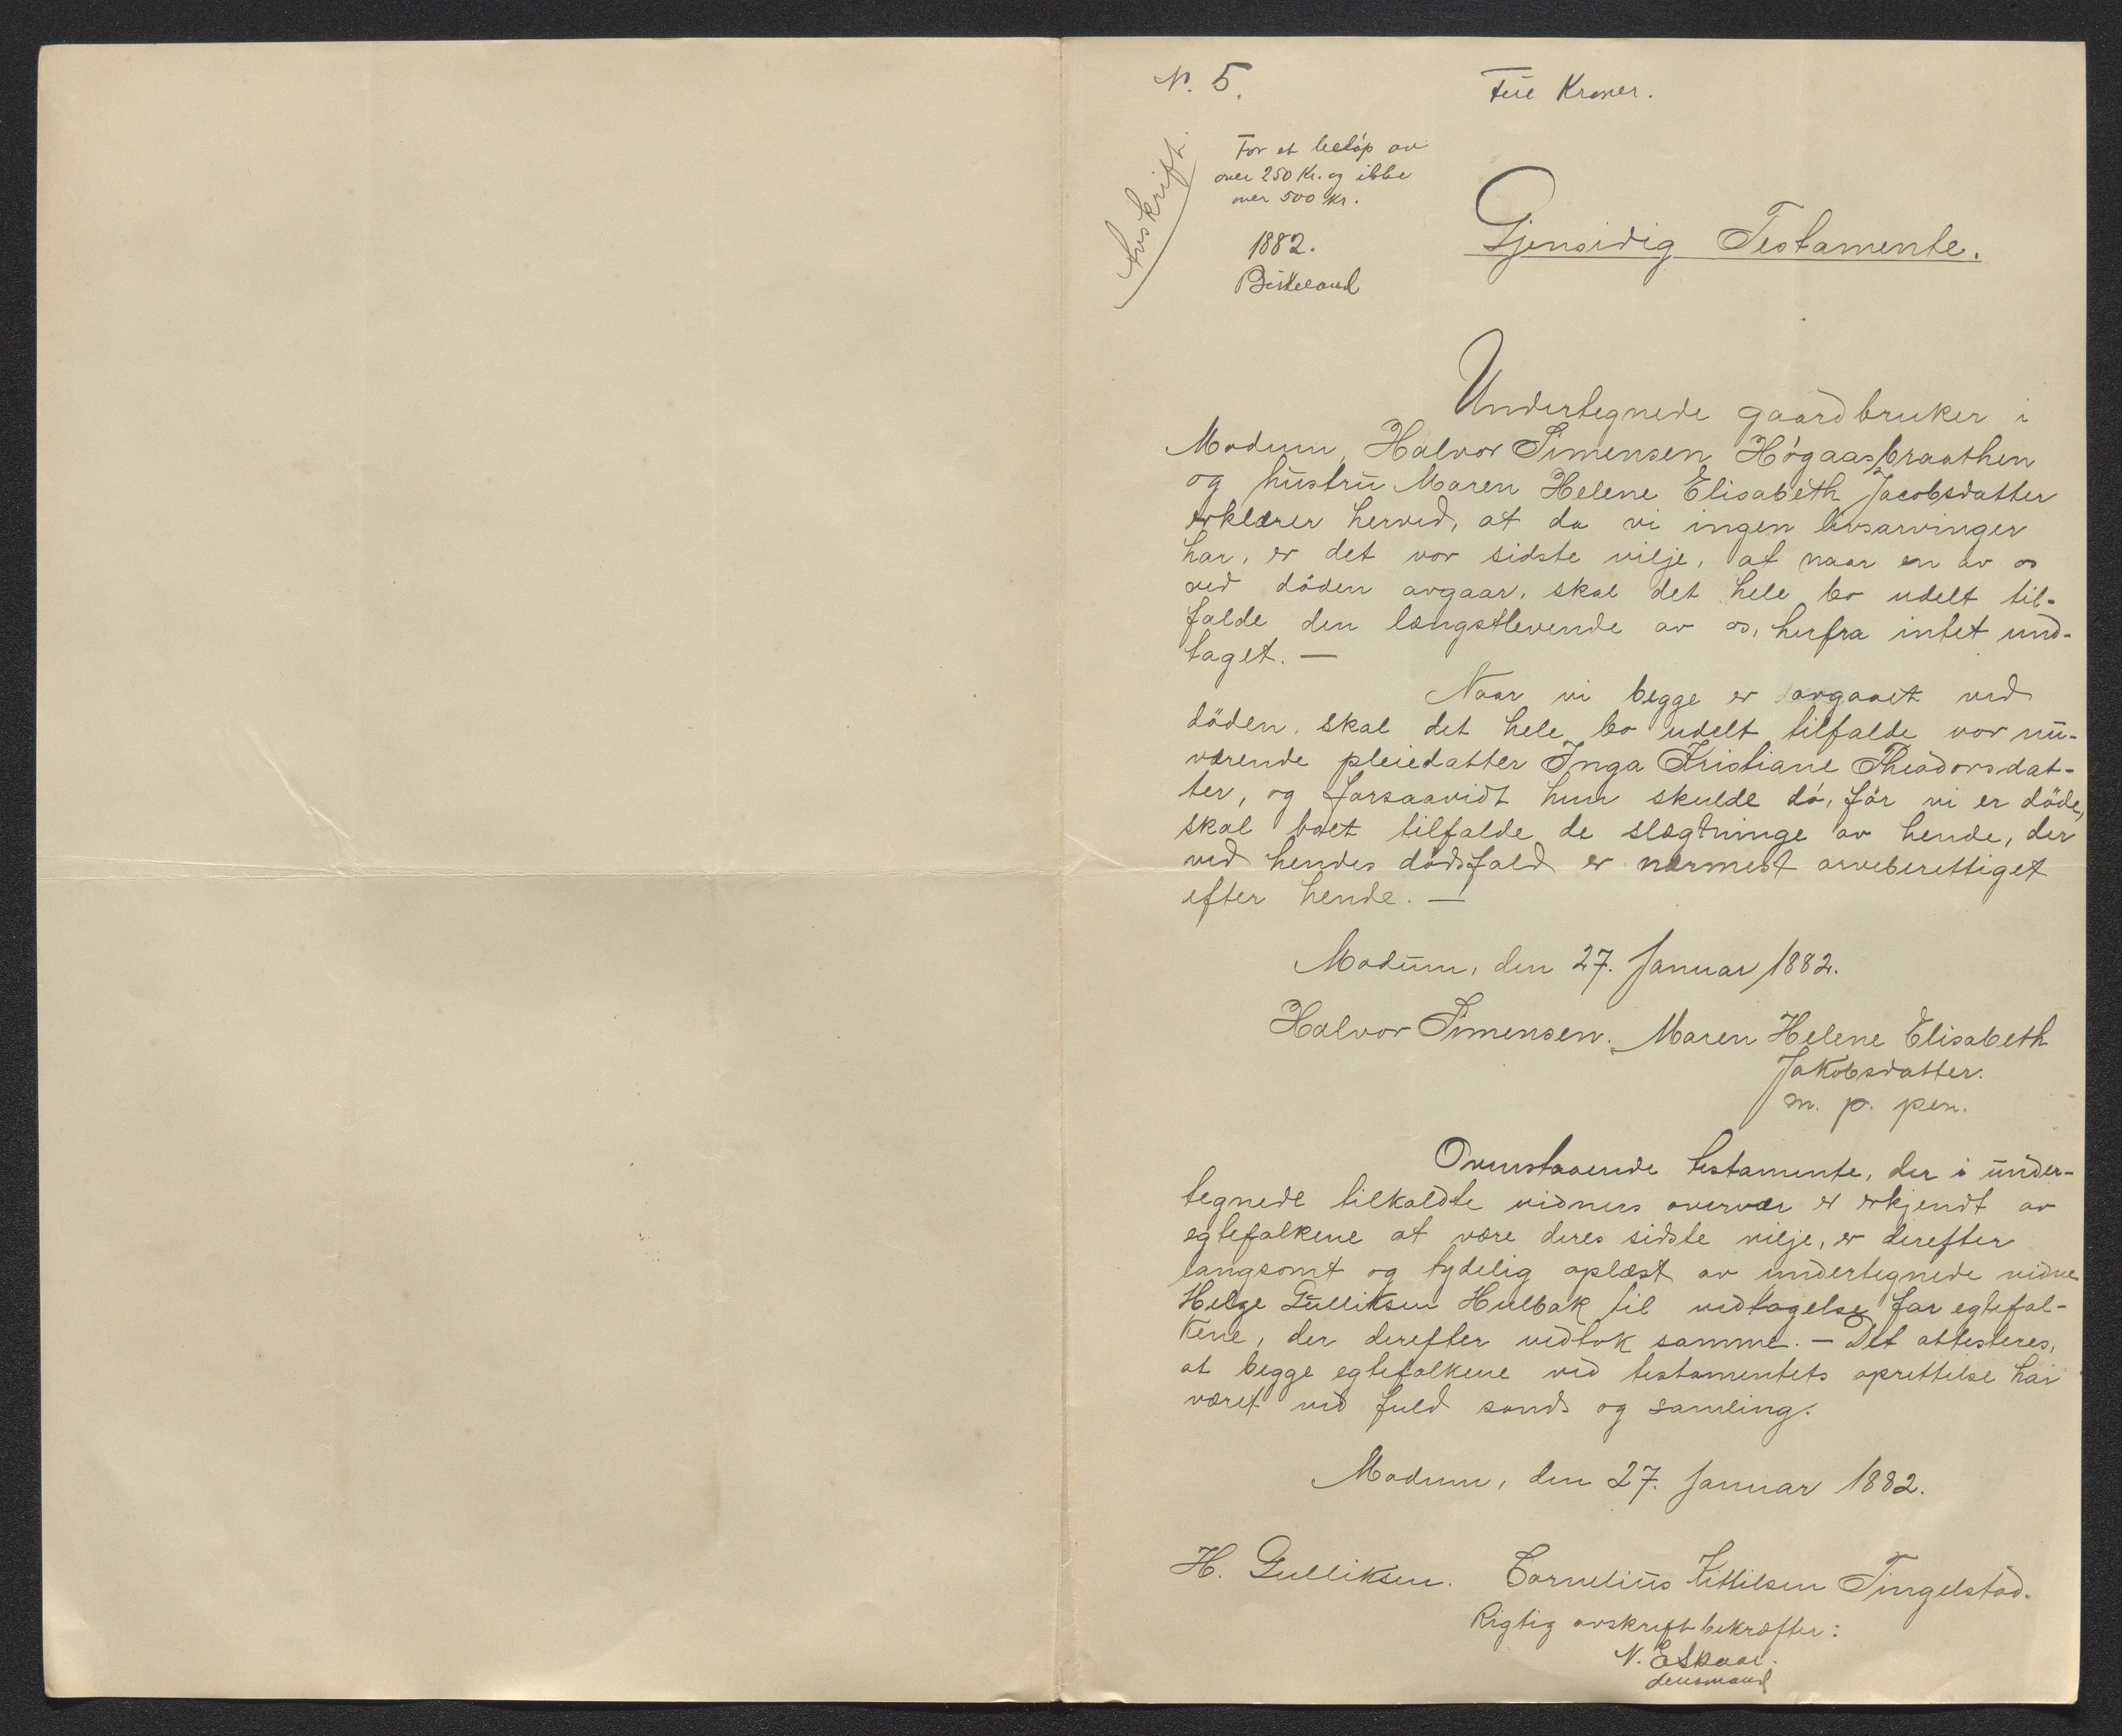 No. 5.
Fire Kroner.
Avskrift.
For et beløp av
over 250 Kr. og ikke
over 500 Kr.
1882.
Birkeland
Gjensidig Testamente.
Undertegnede gaardbruker i
Modum, Halvor Simensen Høgaasbraathen
og hustru Maren Helene Elisabeth Jacobsdatter
erklærer herved, at da vi ingen livsarvinger
har, er det vor sidste vilje, at naar en av os
ved döden avgaar, skal det hele bo udelt til-
falde den længstlevende av os, herfra intet und-
taget. —
Naar vi begge er avgaaet ved
döden, skal det hele bo udelt tilfalde vor nu-
værende pleiedatter Inga Kristiane Theodorsdat-
ter, og forsaavidt hun skulde dø, før vi er döde,
skal boet tilfalde de slægtninge av hende, der
ved hendes dödsfald er nærmest arveberettiget
efter hende. —
Modum, den 27. Januar 1882.
Halvor Simensen. Maren Helene Elisabeth
Jakobsdatter.
m. p. pen.
Ovenstaaende testamente, der i under-
tegnede tilkaldte vidners overvær er erkjendt av
egtefolkene at være deres sidste vilje, er derefter
langsomt og tydelig oplæst av undertegnede vidne
Helge Gulliksen Hulbak til vedtagelse for egtefol-
kene, der derefter vedtok samme. — Det attesteres,
at begge egtefolkene ved testamentets oprettelse har
været ved fuld sands og samling.
Modum, den 27. Januar 1882.
H. Gulliksen. Cornelius Kittilsen Tingelstad.
Rigtig avskrift bekræfter:
N. Eskaar.
lensmand